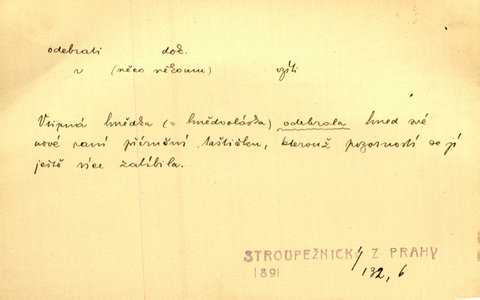 odebrati dok.
v (něco někomu) vzíti
Vtipná hnědka (= hnědovláska) odebrala hned své
nové paní příruční taštičku, kterouž pozorností se jí
ještě více zalíbila.
STROUPEŽNICKÝ Z PRAHY
1891 132, 6